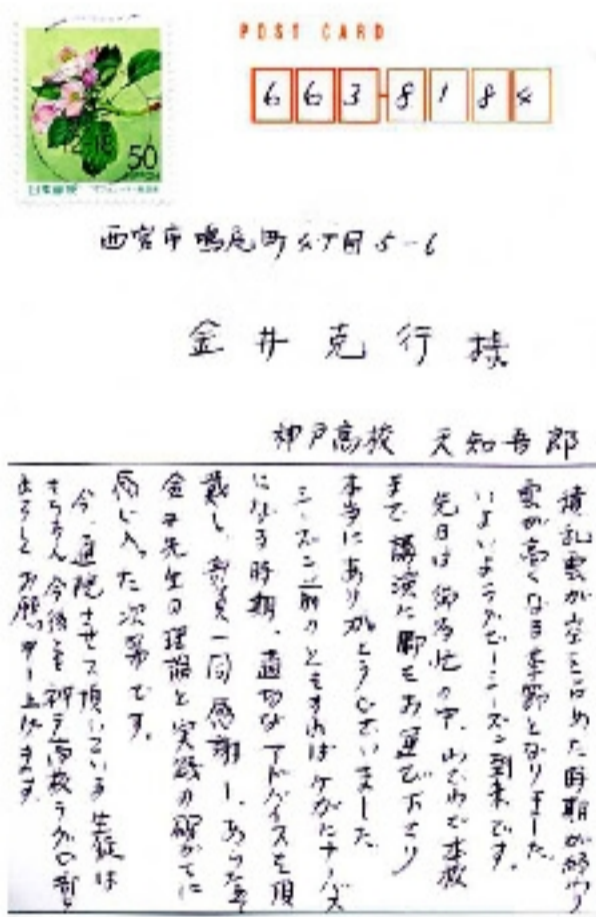 POST CARD
663-8184
12-18
50
NIPPON
日本郵便
西宮市鳴尾町4丁目5-6
金井克行様
神戸高校 天知吾郎
積乱雲が空を占めた時期が終わり
雲が高くなる季節となりました。
いよいよラグビーシーズン到来です。
先日は御多忙の中、わざわざ本校
まで講演に脚をお運び下さり
本当にありがとうございました。
シーズン前のともすればケガにナーバス
になる時期、適切なアドバイスを頂
戴し、部員一同感謝し、あらためて
金井先生の理論と実践の確かさに
感じ入った次第です。
今、通院させて頂いている生徒は
もちろん今後とも神戸高校ラグビー部を
よろしくお願い申し上げます。